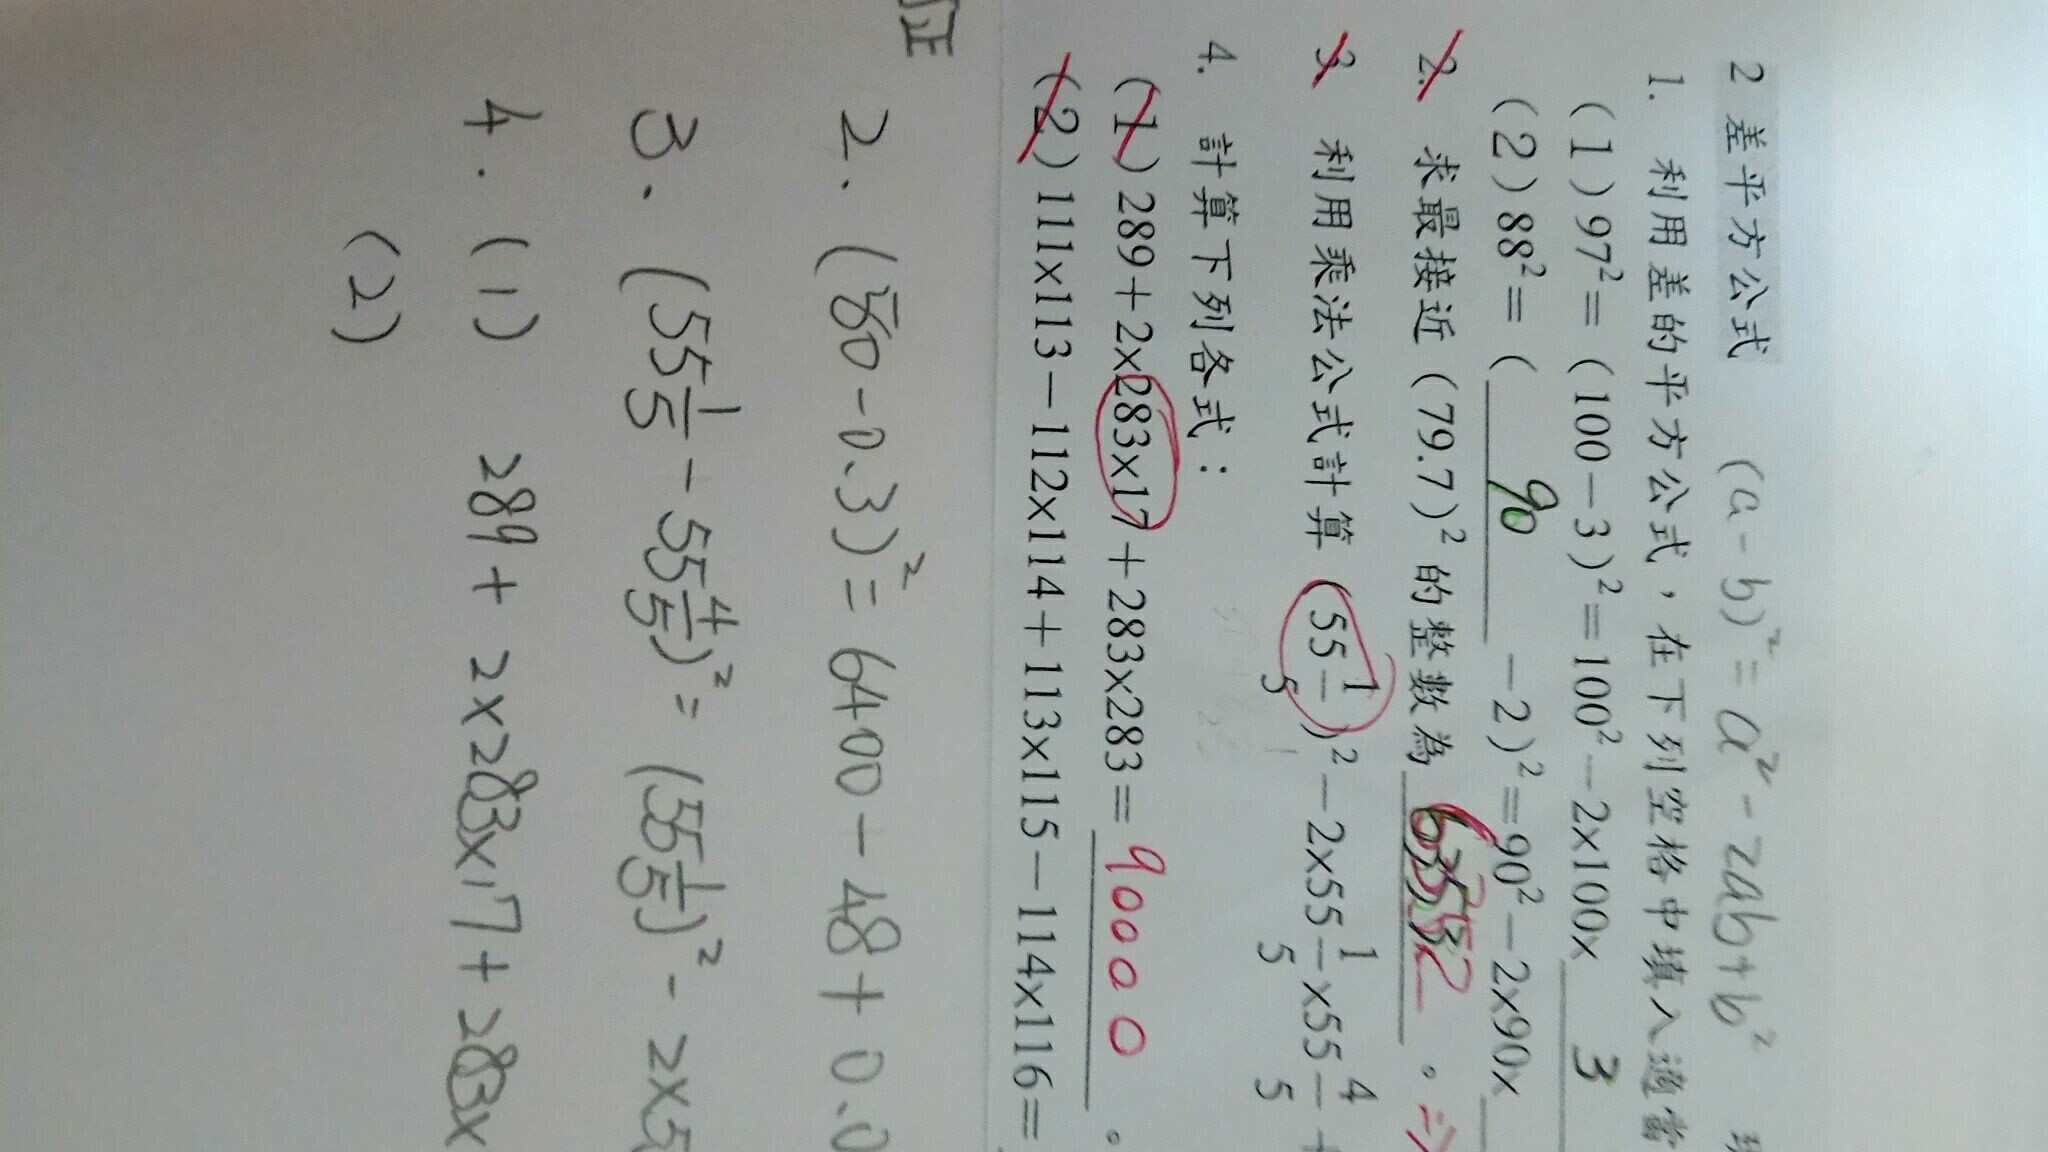 2 差平方公式 (a-b)²=a²-2ab+b²
1. 利用差的平方公式，在下列空格中填入適當
(1) 97²=(100-3)²=100²-2x100x 3
(2) 88²=( 90 -2)²=90²-2x90x
2. 求最接近 (79.7)² 的整數為 6352 。
3. 利用乘法公式計算 (55 1/5)²-2x55 1/5 x55 4/5 +
4. 計算下列各式：
(1) 289+2x283x17+283x283= 90000 。
(2) 111x113-112x114+113x115-114x116=
正
2. (80-0.3)²=6400-48+0.0
3. (55 1/5 - 55 4/5)² = (55 1/5)² - 2x5
4. (1) 289+2x283x17+283x
(2)